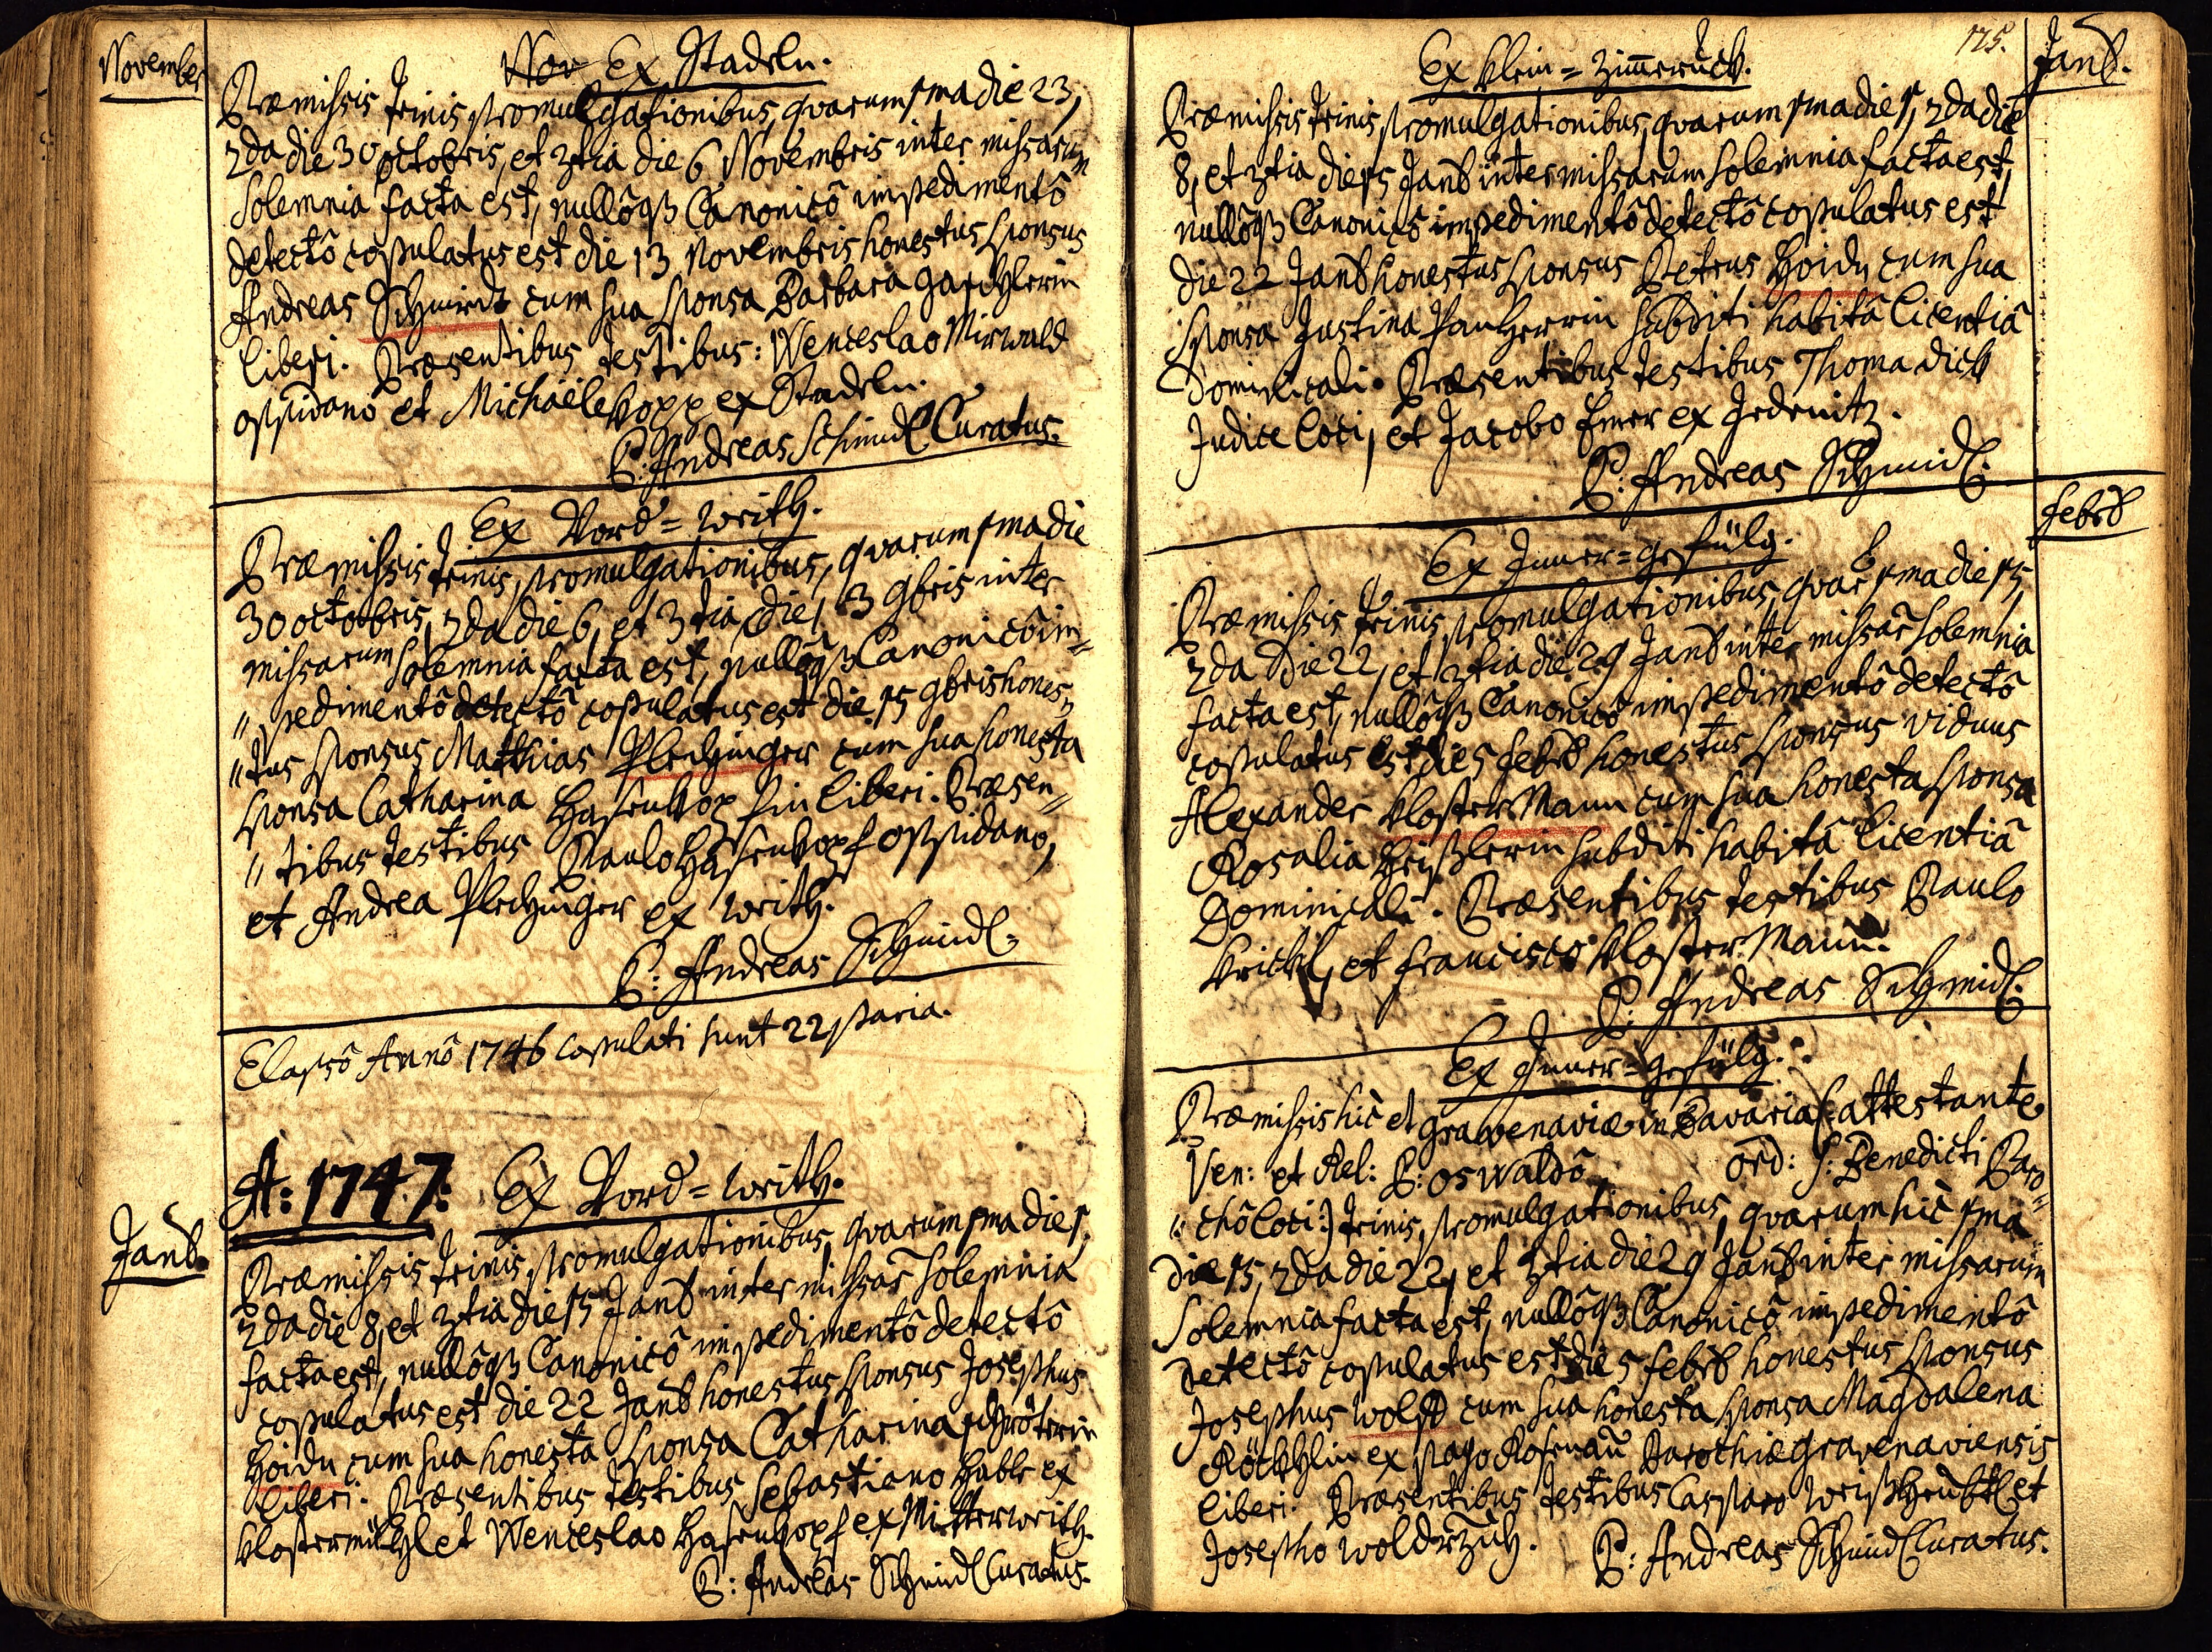 November
Nov Ex Stadeln.
Præmissis trinis promulgationibus, quarum 1ma die 23,
2da die 30 octobris, et 3tia die 6 Novembris inter missarum
Solemnia facta est, nullôqz Canonicô impedimentô
detectô copulatus est die 13 Novembris honestus sponsus
Andreas Schmidt cum sua sponsa Barbara
liberi. Præsentibus testibus: Wenceslao Mirwald
oppidano et Michaële Kopp ex Stadeln.
P: Andreas Schmidl Curatus.
Ex Vord = Writh.
Præmissis trinis promulgationibus, quarum 1ma die
30 octobris, 2da die 6, et 3tia die 13 9bris inter
missarum solemnia facta est, nullôqz Canonicô im=
"pedimentô detectô copulatus est die 15 9bris hones=
"tus sponsus Matthias Plechinger cum sua honesta
sponsa Catharina Hasenkopfin liberi. Præsen=
"tibus testibus Paulo Hasenkopf oppidano,
et Andrea Plechinger ex Writh.
P: Andreas Schmidl.
Elapsô Annô 1746 copulati sunt 22 paria.
A: 1747: Ex Vord = Writh.
Janr.
Præmissis trinis promulgationibus, quarum 1ma die 1,
2da die 8, et 3tia die 15 Janr inter missar solemnia
facta est, nullôqz Canonicô impedimentô detectô
copulatus est die 22 Janr honestus sponsus Josephus
Hoidn cum sua honesta sponsa Catharina Schröterin
liberi. Præsentibus testibus Sebastiano Hable ex
Klostermühl et Wenceslao Hasenkopf ex Mitterwrith.
P: Andreas Schmidl Curatus.
125.
Janr.
Ex Klein = Zimmeruck.
Præmissis trinis promulgationibus, quarum 1ma die 1, 2da die
8, et 3tia die 15 Janr inter missarum solemnia facta est,
nullôqz Canonicô impedimentô detectô copulatus est
die 22 Janr honestus sponsus Petrus Hoidn cum sua
sponsa Justina subditi habitâ licentiâ
Dominicali. Præsentibus testibus Thoma Dick
Judice loci, et Jacobo ex Jedenitz.
P: Andreas Schmidl.
Febr
Ex Inner = Gefülg.
Præmissis trinis promulgationibus, quar 1ma die 15,
2da Die 22, et 3tia die 29 Janr inter missar solemnia
facta est, nullôqz Canonicô impedimentô detectô
copulatus est die 5 Febr honestus sponsus viduus
Alexander Kloster Mann cum sua honesta sponsa
Rosalia subditi habitâ licentiâ
Dominicali. Præsentibus testibus Paulo
Krickl, et Francisco Kloster Mann.
P: Andreas Schmidl.
Ex Inner = Gefülg.
Præmissis hic et Gravenaviæ in Bavaria (: attestante
Ven: et Rel: P: Oswaldô ord: S: Benedicti Paro=
"chô loci :) trinis promulgationibus, quarum hic 1ma
Die 15, 2da die 22, et 3tia die 29 Janr inter missarum
Solemnia facta est, nullôqz Canonicô impedimentô
Detectô copulatus est die 5 Febr honestus sponsus
Josephus Wolf cum sua honesta sponsa Magdalena
Röcklin ex pago Rosenau Parochiæ Gravenaviensis
liberi. Præsentibus testibus Casparo et
Josepho P: Andreas Schmidl Curatus.